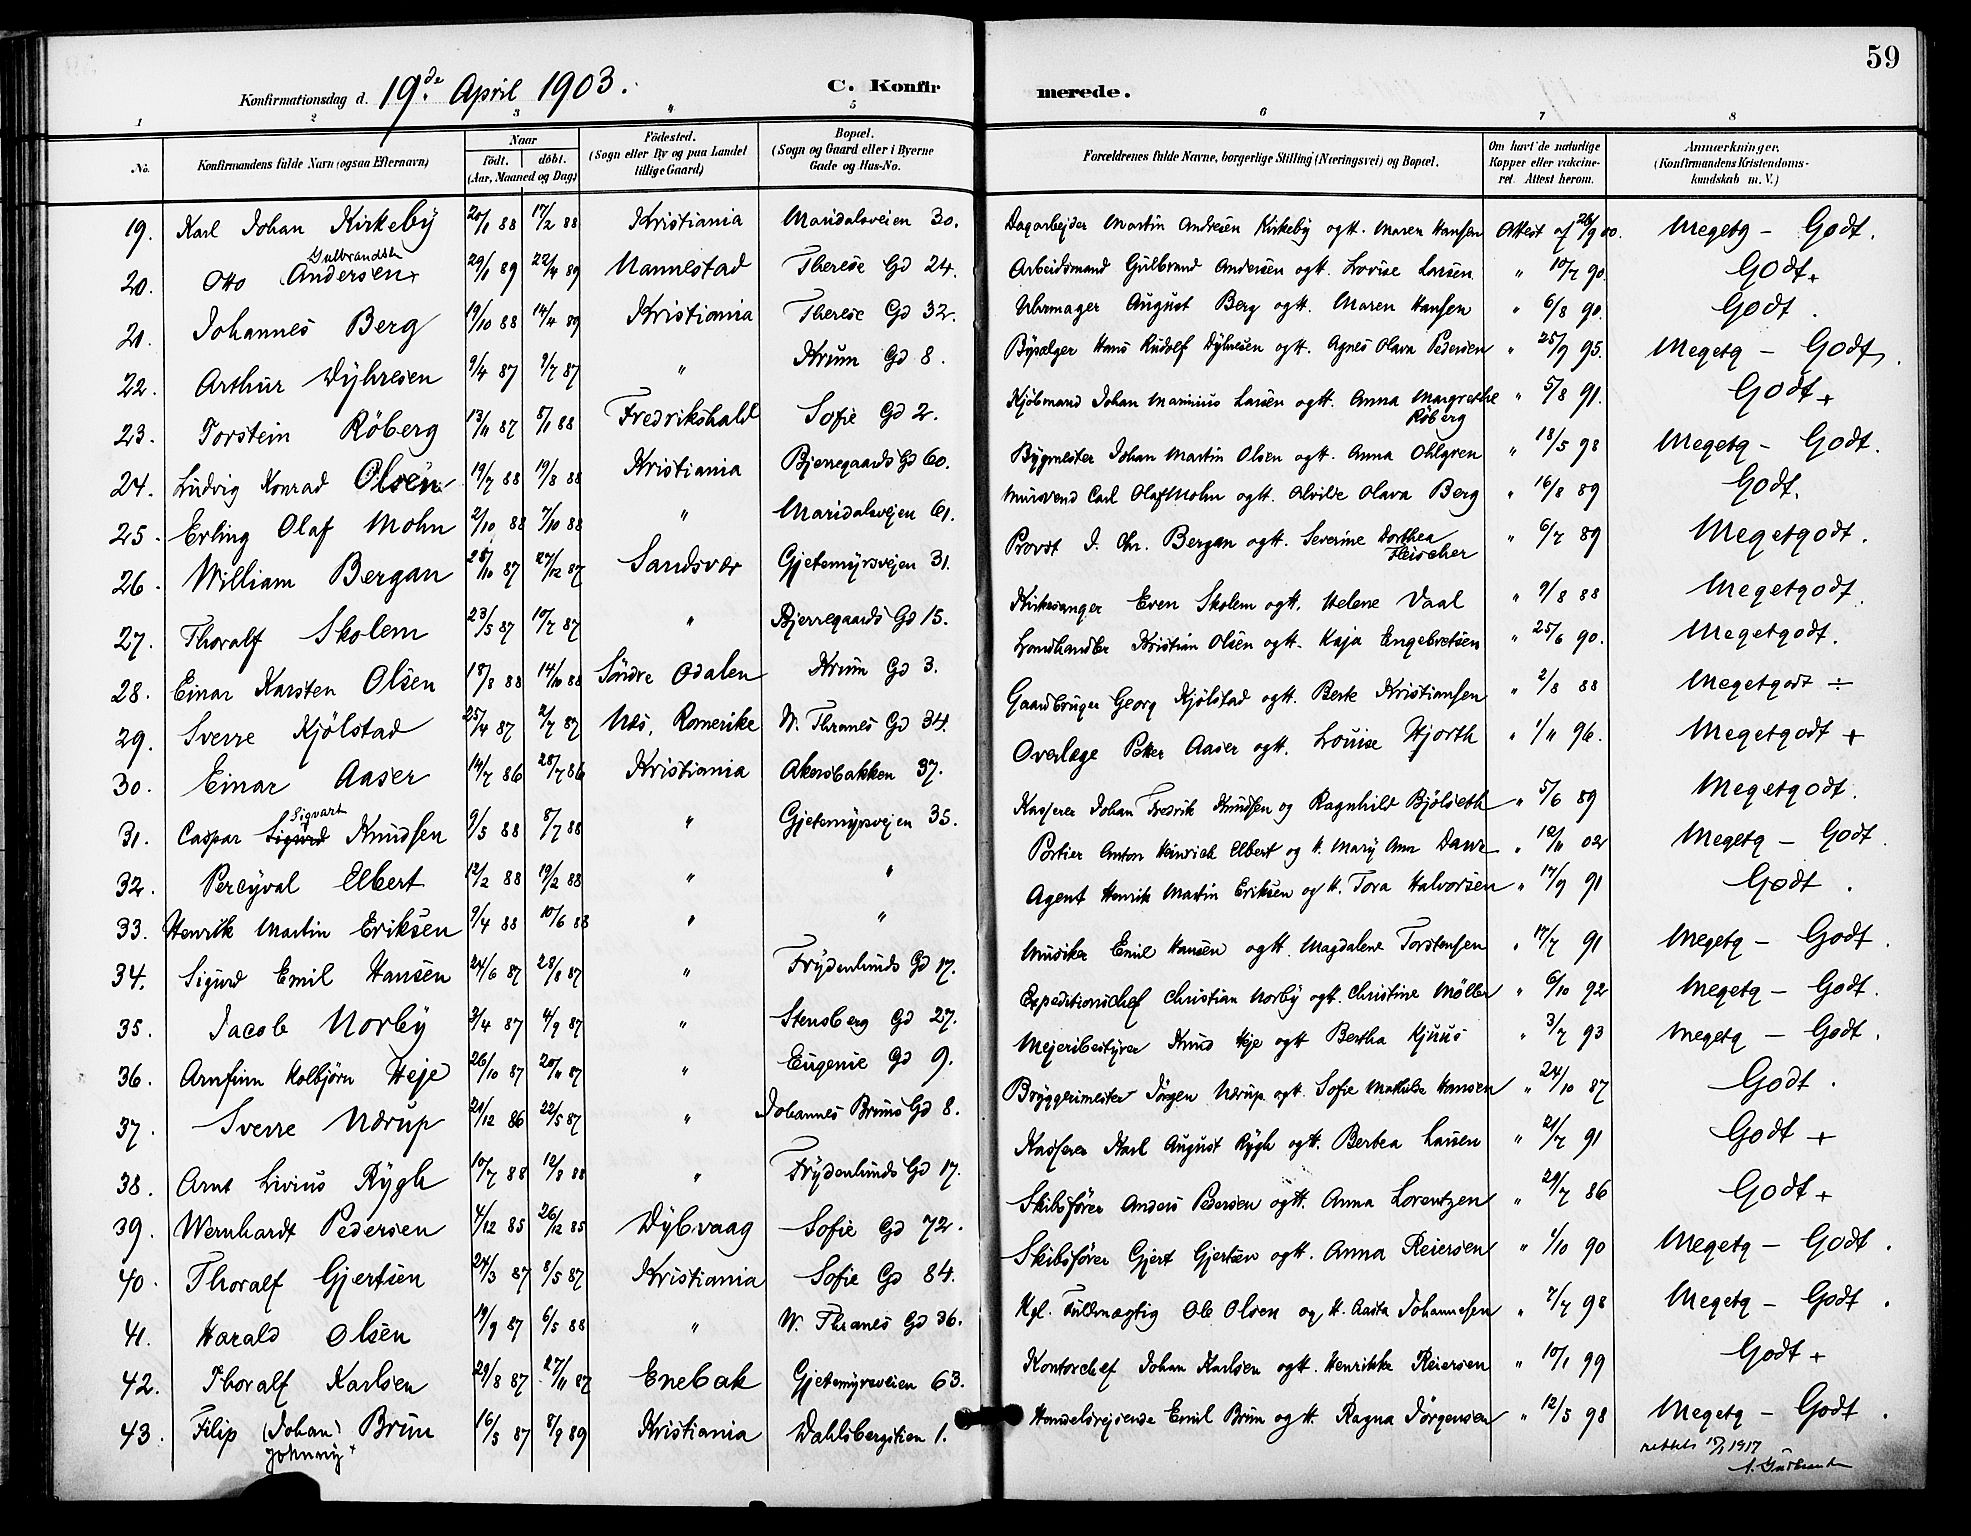 59
Konfirmationsdag d. 19de April 1903. C. Konfirmerede.
1 2 3 " 5 6 7 8
No. Konfirmandens fulde Navn (ogsaa Efternavn) Naar født. døbt. (Aar, Maaned og Dag) Fødested. (Sogn eller By og paa Landet tillige Gaard) Bopæl. (Sogn og Gaard eller i Byerne Gade og Hus-No. Forældrenes fulde Navne, borgerlige Stilling (Næringsvei) og Bopæl. Om havt de naturlige Kopper eller vakcineret. Attest herom. Anmærkninger. (Konfirmandens Kristendomskundskab m. V.)
19. Karl Johan Kirkeby 20/1 88 17/2 88 Kristiania Maridalsveien 30. Dagarbejder Martin Andresen Kirkeby ogH. Maren Hansen Attest af 26/9 00. Megetg - Godt.
20. Otto Andersen Gulbrandsen 29/1 89 22/4 89 Nannestad Therese Gd 24. Arbeidsmand Gulbrand Andersen ogH. Lovise Larsen " 10/7 90. Godt +
21. Johannes Berg 19/10 88 14/4 89 Kristiania Therese Gd 32. Uhrmager August Berg ogH. Maren Hansen " 6/8 90. Godt.
22. Arthur Dyhresen 9/4 87 9/7 87 " Krum Gd 8. Hans Rudolf Dyhresen ogH. Agnes Olava Pedersen " 25/9 95. Megetg - Godt.
23. Torstein Röberg 13/11 87 8/1 88 Fredrikshald Sofie Gd 2. Kjöbmand Johan Marinius Larsen ogH. Anna Margrethe Röberg " 5/8 91. Godt +
24. Ludvig Konrad Olsen 19/7 88 19/8 88 Kristiania Bjerregaards Gd 60. Bygmester Johan Martin Olsen ogH. Anna Ohlgren " 18/5 98 Megetg - Godt.
25. Erling Olaf Mohn 2/10 88 7/10 88 " Maridalsvejen 61. Mursvend Carl Olaf Mohn ogH. Alvilde Olava Berg " 16/8 89 Godt.
26. William Bergan 28/10 87 27/12 87 Sandsvær Gjetemyrsvejen 31. Provst J. Chr. Bergan ogH. Severine Dorthea Fleischer " 6/7 89 Megetgodt.
27. Thoralf Skolem 23/5 87 10/7 87 " Bjerregaards Gd 15. Kirkesanger Even Skolem ogH. Helene Vaal " 9/8 88 Megetgodt.
28. Einar Karsten Olsen 18/8 88 14/10 88 Söndre Odalen Krum Gd 3. Landhandler Kristian Olsen ogH. Kaja Engebretsen " 25/6 90. Megetgodt.
29. Sverre Kjölstad 25/4 87 2/7 87 Næs, Romerike W. Thranes Gd 34. Gaardbruger Georg Kjölstad ogH. Berte Kristiansen " 2/8 88 Megetgodt ÷
30. Einar Aaser 14/7 86 28/7 86 Kristiania Akersbakken 37. Overlæge Petter Aaser ogH. Louise Hjorth " 1/11 96. Megetgodt +
31. Caspar Sigurd Sigvart Knudsen 9/5 88 8/7 88 " Gjetemyrsvejen 35. Kasserer Johan Fredrik Knudsen og Ragnhild Bjölseth " 5/6 89 Megetgodt.
32. Percyval Elbert 12/2 88 19/2 88 " " Portier Anton Heinrich Elbert og H. Mary Ann " 12/11 02 Megetg - Godt.
33. Henrik Martin Eriksen 9/4 88 10/6 88 " " Agent Henrik Martin Eriksen og H. Tora Halvorsen " 17/9 91 Godt.
34. Sigurd Emil Hansen 24/6 87 28/8 87 " Frydenlunds Gd 17. Musiker Emil Hansen ogH. Magdalene Torstensen " 17/7 91 Megetg - Godt.
35. Jacob Norby 3/4 87 4/9 87 " Stensberg Gd 27. Expeditionschef Christian Norby ogH. Christine Møller " 6/10 92 Megetg - Godt.
36. Arnfinn Kolbjørn Heje 26/10 87 20/11 87 " Eugenie Gd 9. Mejeribestyrer Knud Heje ogH Bertha Kjuus " 3/7 93 Megetg - Godt.
37. Sverre Nærup 21/12 86 22/5 87 " Johannes Bruns Gd 8. Bryggerimester Jörgen Nærup ogH. Sofie Mathilde Hansen " 24/10 87 Godt.
38. Arnt Livius Rygh 10/7 88 12/8 88 " Frydenlunds Gd 17. Kasserer Karl August Rygh ogH. Berbea Larsen " 21/7 91 Godt +
39. Wernhardt Pedersen 4/12 85 26/12 85 Dybvaag Sofie Gd 72. Skibsfører Anders Pedersen ogH. Anna Lorentzen " 29/7 86 Godt +
40. Thoralf Gjertsen 24/3 87 8/5 87 Kristiania Sofie Gd 84. Skibsfører Gjert Gjertsen ogH. Anna Reiersen " 4/10 90 Megetg - Godt.
41. Harald Olsen 19/9 87 6/5 88 " W. Thranes Gd 36. Kgl. Fuldmægtig Ole Olsen og H. Aasta Johannesen " 7/7 98 Megetg - Godt.
42. Thoralf Karlsen 29/8 87 27/11 87 Enebak Gjetemyrsveien 63. Kontorchef Johan Karlsen ogH. Henrikke Reiersen " 10/1 99 Godt +
43. Filip (Johan) Brun 16/5 87 8/9 89 Kristiania Dahlsbergstien 1. Handelsrejsende Emil Brun og H. Ragna Jörgensen " 12/5 98 Megetg - Godt.
Johnny +
rettet 1917